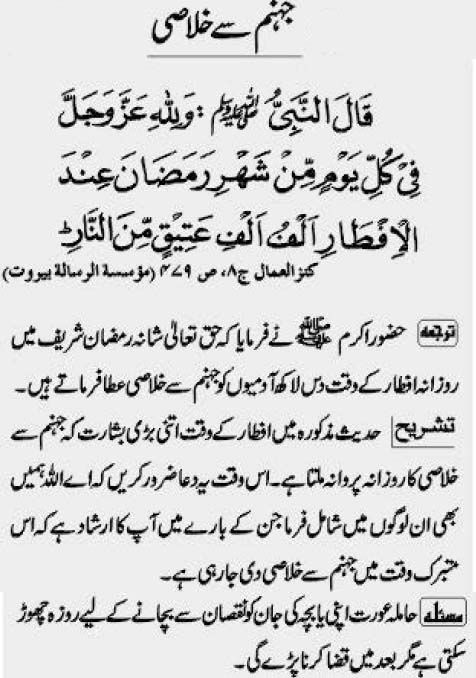 جہنم سے خلاصی
قَالَ النَّبِيُّ ﷺ : وَلِلهِ عَزَّوَجَلَّ
فِيْ كُلِّ يَوْمٍ مِّنْ شَهْرِ رَمَضَانَ عِنْدَ
الْاِفْطَارِ اَلْفُ اَلْفِ عَتِيْقٍ مِّنَ النَّارِ ؕ
کنزالعمال ج۸، ص ۴۷۹ (مؤسسة الرسالة بیروت)
ترجمہ حضور اکرم ﷺ نے فرمایا کہ حق تعالیٰ شانہ رمضان شریف میں
روزانہ افطار کے وقت دس لاکھ آدمیوں کو جہنم سے خلاصی عطا فرماتے ہیں۔
تشریح حدیث مذکورہ میں افطار کے وقت اتنی بڑی بشارت کہ جہنم سے
خلاصی کا روزانہ پروانہ ملتا ہے۔ اس وقت یہ دعا ضرور کریں کہ اے اللہ ہمیں
بھی ان لوگوں میں شامل فرما جن کے بارے میں آپ کا ارشاد ہے کہ اس
متبرک وقت میں جہنم سے خلاصی دی جارہی ہے۔
مسئلہ حاملہ عورت اپنی یا بچہ کی جان کو نقصان سے بچانے کے لیے روزہ چھوڑ
سکتی ہے مگر بعد میں قضا کرنا پڑے گی۔